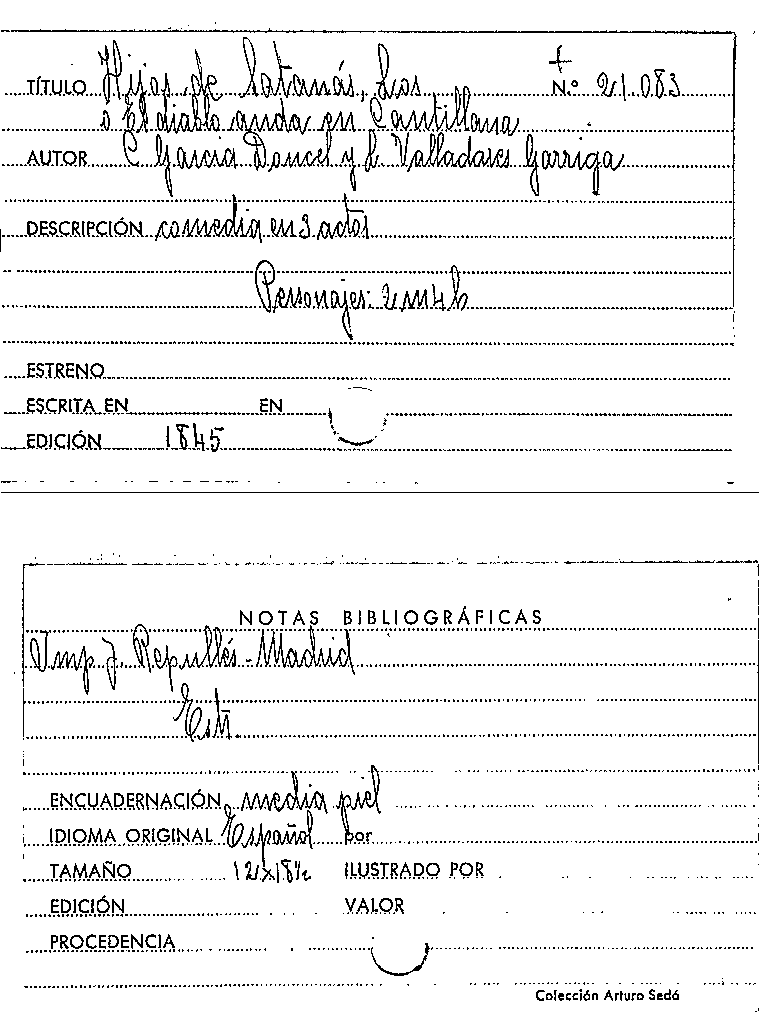 +
TÍTULO Hijos de Satanás, Los N.º 21.083
o El diablo anda en Cantillana
AUTOR C Garcia Doncel y L. Valladares Garriga
DESCRIPCIÓN comedia en 3 actos
Personajes: 2 m 4 h
ESTRENO
ESCRITA EN EN
EDICIÓN 1845
NOTAS BIBLIOGRÁFICAS
Imp J. Repullés - Madrid
Estr.
ENCUADERNACIÓN media piel
IDIOMA ORIGINAL Español por
TAMAÑO 12x18½ ILUSTRADO POR
EDICIÓN VALOR
PROCEDENCIA
Colección Arturo Sedó